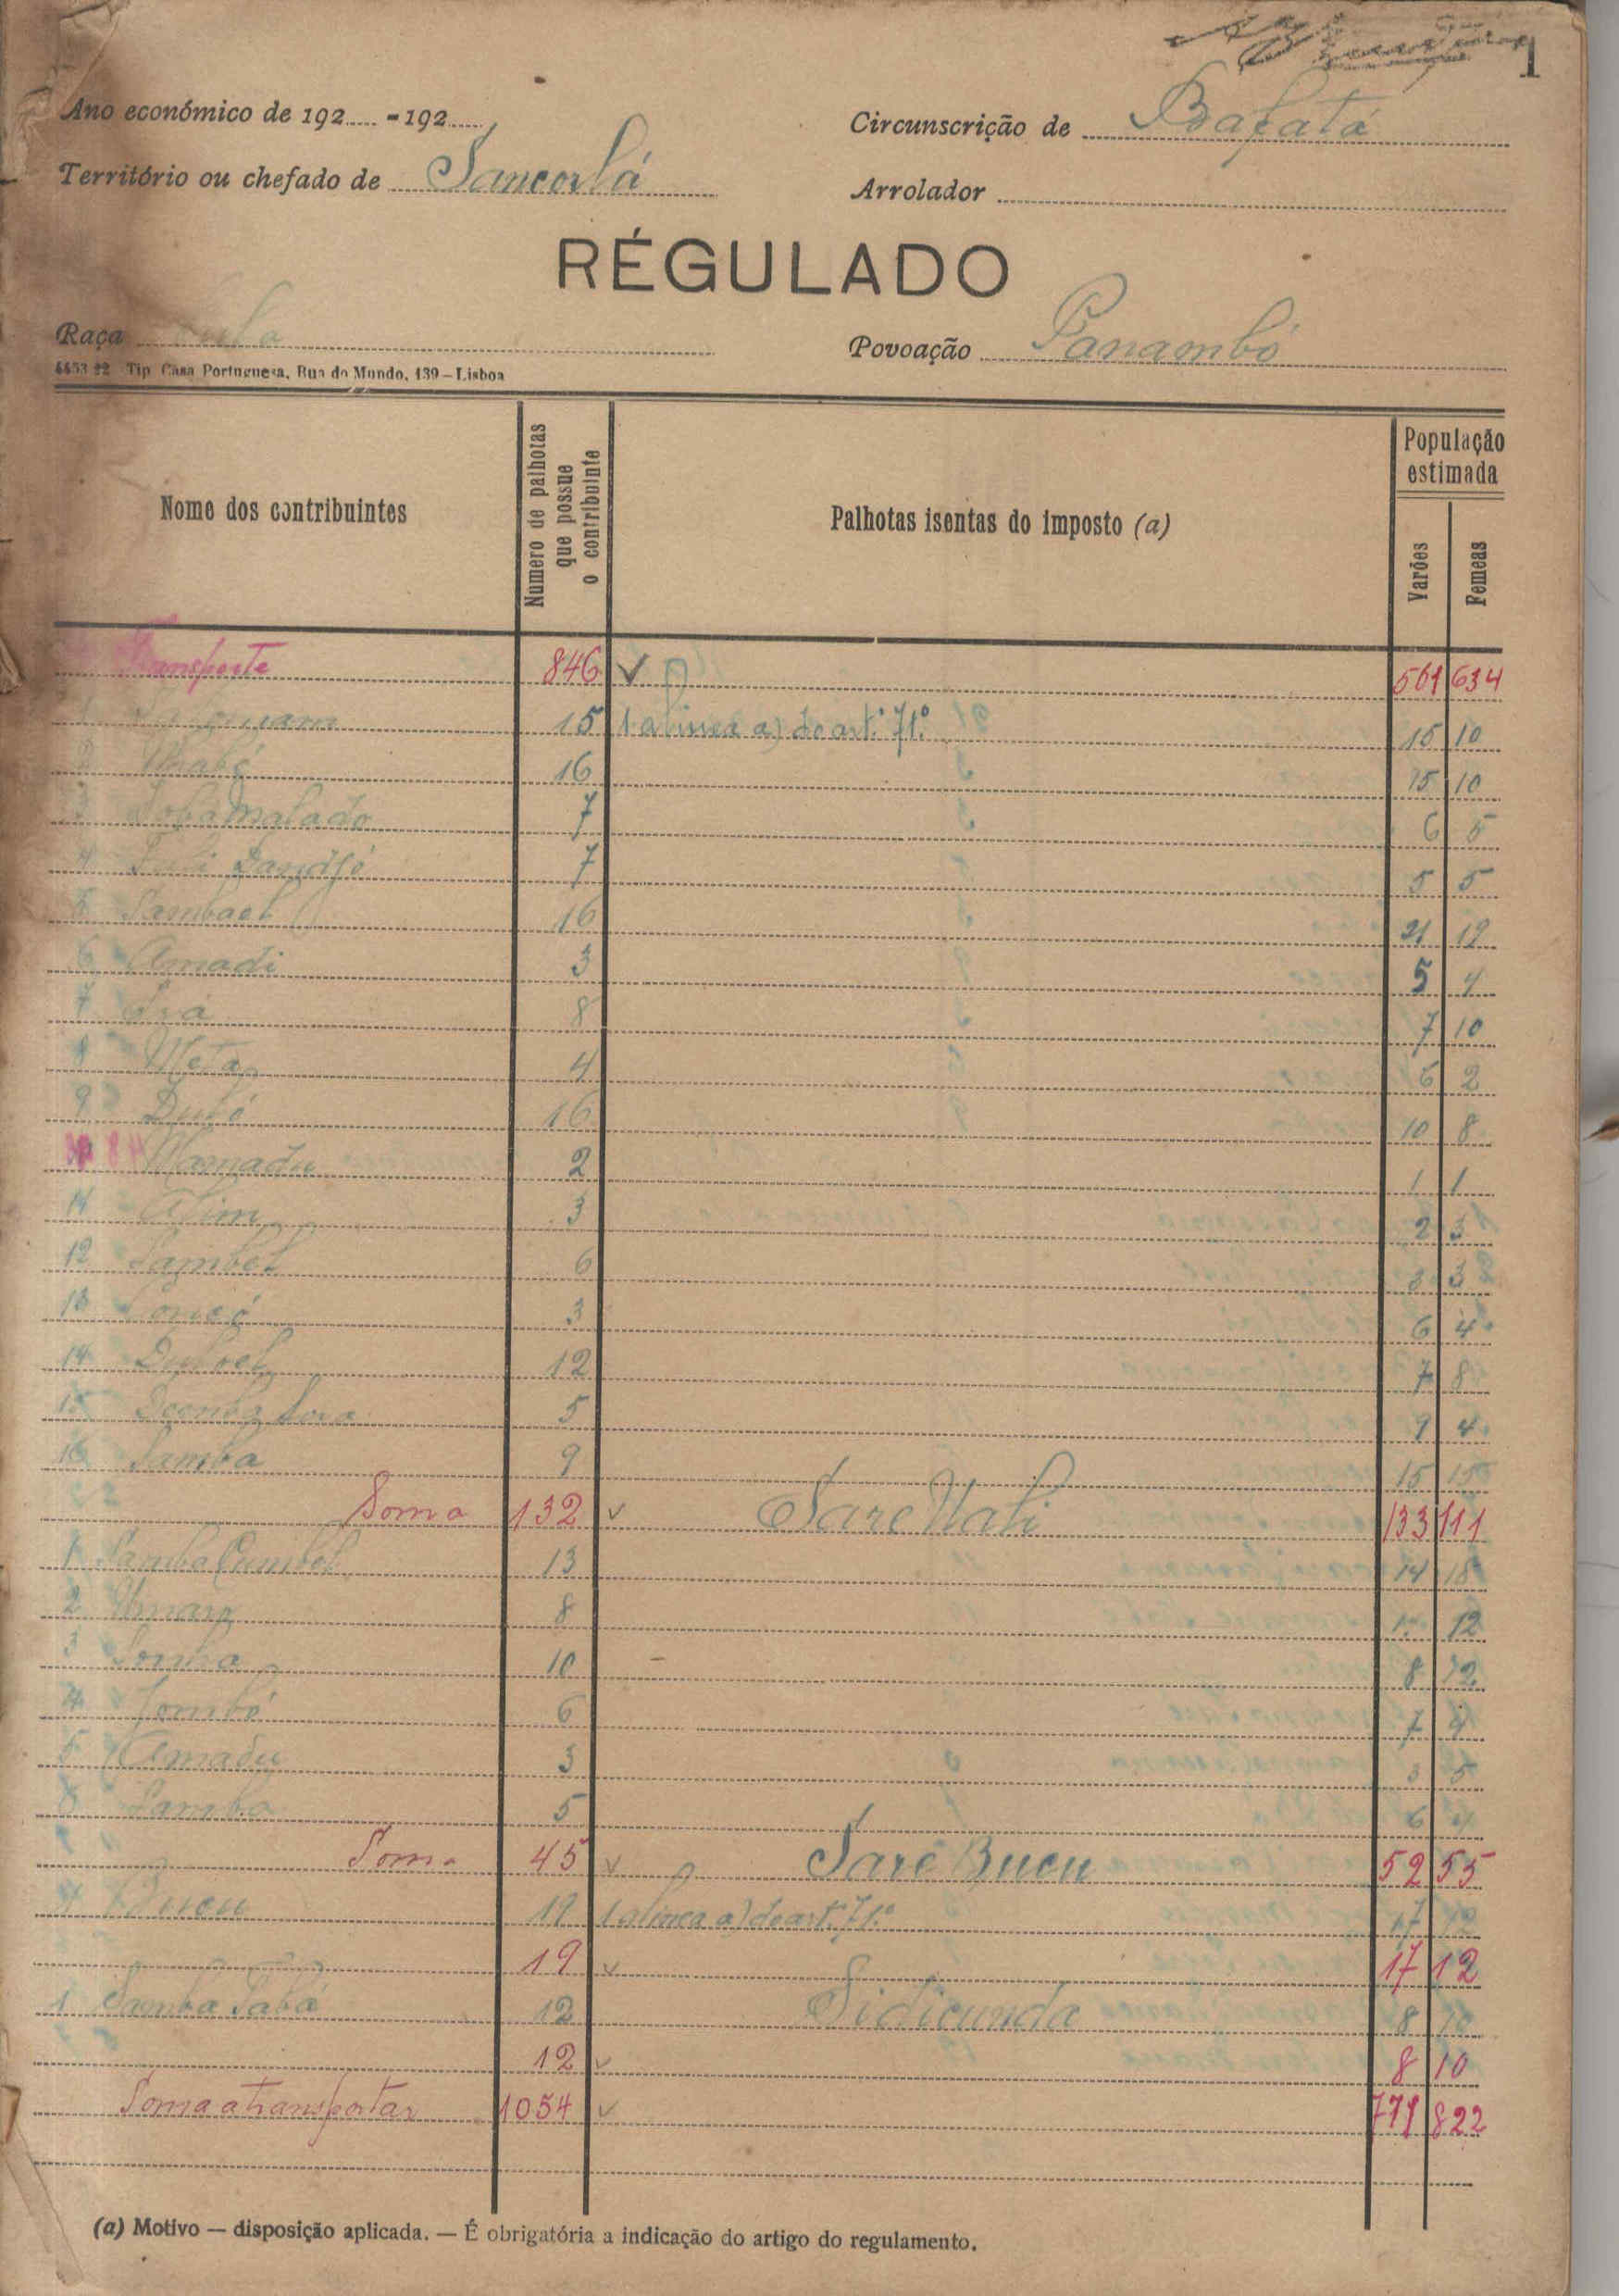 1
Ano económico de 192..... - 192.....
Circunscrição de Bafatá
Território ou chefado de Sancorlá
Arrolador
RÉGULADO
Raça Fula
Povoação Panambó
Tip. Casa Portuguesa, Rua do Mundo, 139 — Lisboa
Nome dos contribuintes
Numero de palhotas que possue o contribuinte
Palhotas isentas do imposto (a)
População estimada
Varões
Femeas
Transporte 846 ✓ 561 634
1 15 1 alinea a) do art.º 71.º 15 10
2 16 15 10
3 7 6 5
4 7 5 5
5 Sambael 16 21 12
6 Amadi 3 5 4
7 8 7 10
8 Meta 4 6 2
9 16 10 8
10 Mamadu 2 1 1
11 Alim 3 2 3
12 Sambel 6 3 3
13 3 6 4
14 12 7 8
15 5 9 4
16 Samba 9 15 15
Soma 132 ✓ Sare Uali 133 111
1 Samba Cumbel 13 14 18
2 Umaro 8 12
3 10 8 12
4 Jombó 6 7 4
5 Amadu 3 3 5
Samba 5 6 4
Soma 45 ✓ Sare Bucu 52 55
Bucu 19 1 alinea a) do art.º 71.º 17 12
19 ✓ 17 12
1 Samba Sabá 12 Sidicunda 8 10
12 ✓ 8 10
Soma a transportar 1054 ✓ 771 822
(a) Motivo — disposição aplicada. — É obrigatória a indicação do artigo do regulamento.